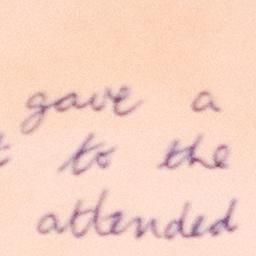 gave a
to the
attended